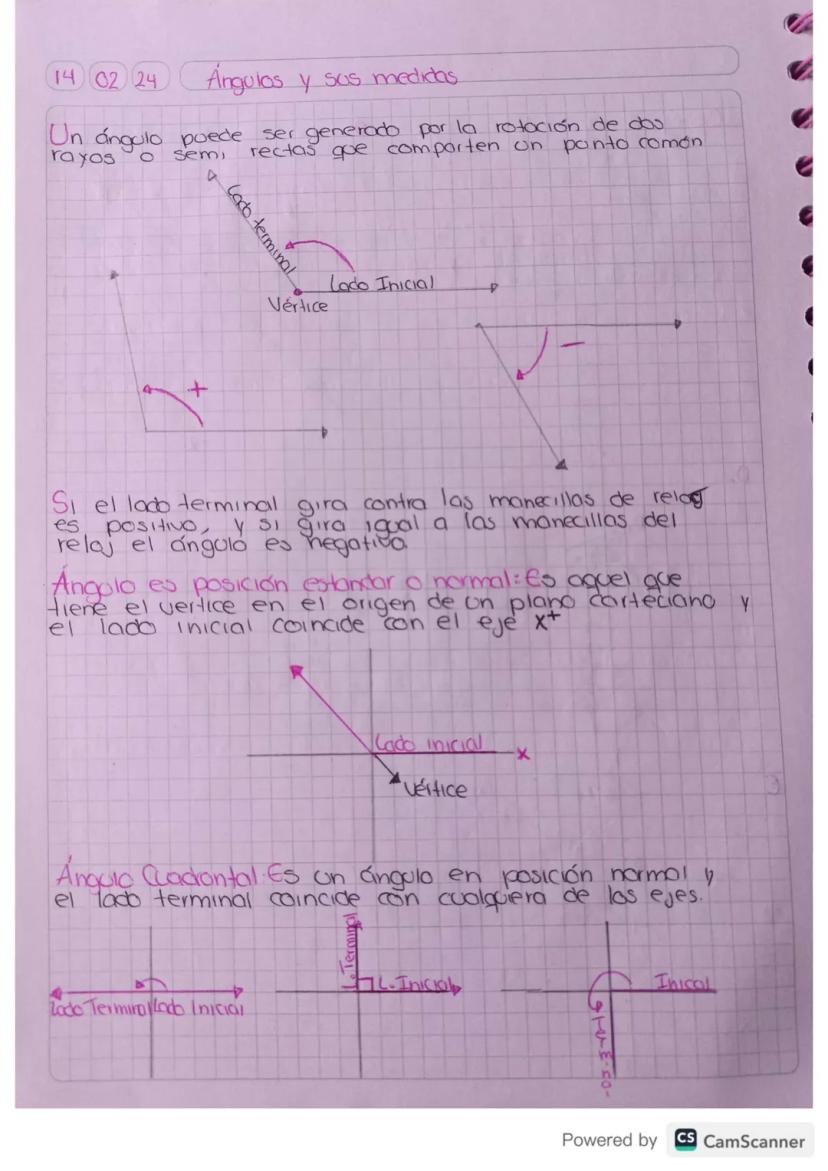 14 02 24 Ángulos y sus medidas
Un ángulo puede ser generado por la rotación de dos
rayos o semi rectas que comparten un punto común
Lado terminal
Lado Inicial
Vértice
−
+
Si el lado terminal gira contra las manecillas de reloj
es positivo, y si gira igual a las manecillas del
reloj el ángulo es negativo
Ángulo es posición estandar o normal: Es aquel que
tiene el vertice en el origen de un plano carteciano y
el lado inicial coincide con el eje x⁺
Lado inicial x
Vértice
Ángulo Cuadrontal Es un ángulo en posición normal y
el lado terminal coincide con cualquiera de los ejes.
Lado Terminal Lado Inicial
L. Terminal
L. Inicial
Inicial
Powered by CS CamScanner